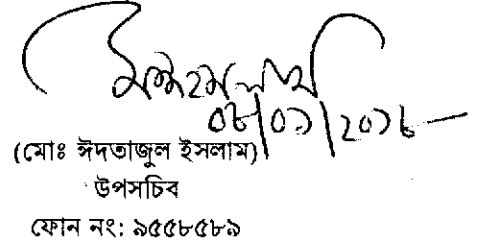 ০৮/০১/২০১৮
(মোঃ ঈদতাজুল ইসলাম)
উপসচিব
ফোন নং: ৯৫৫৮৫৮৯